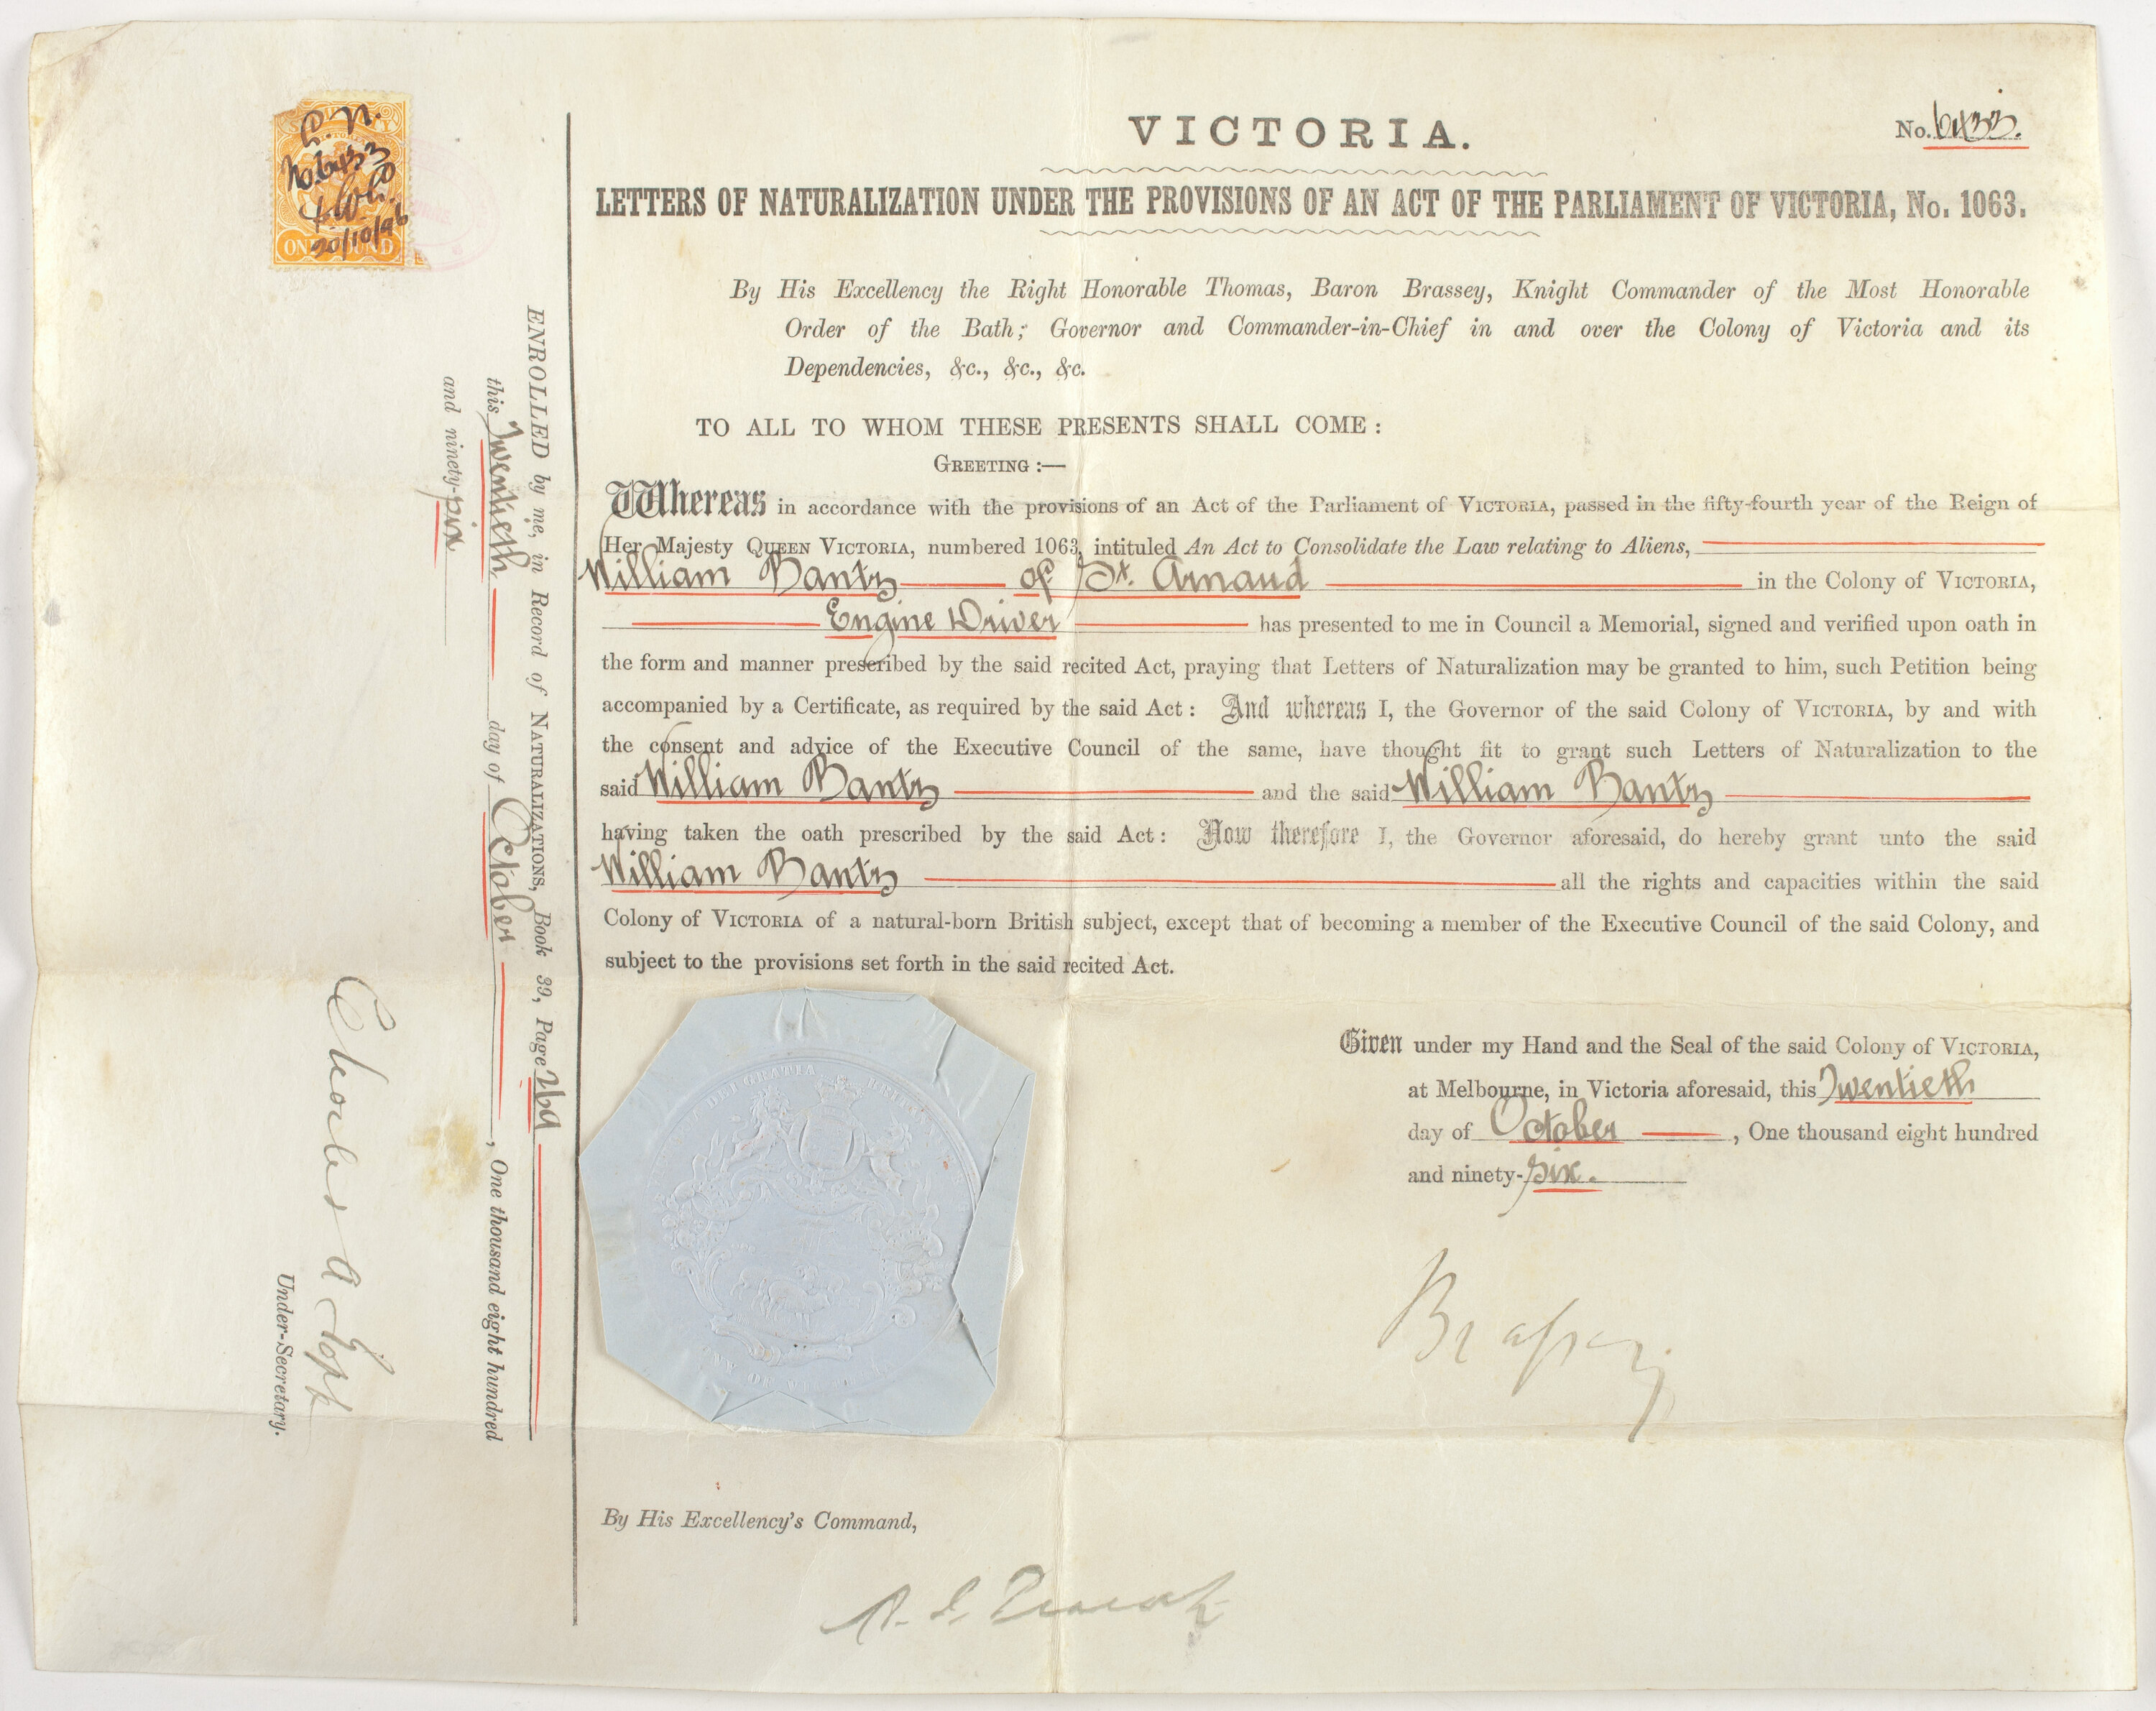 VICTORIA.
No. 6433.
LETTERS OF NATURALIZATION UNDER THE PROVISIONS OF AN ACT OF THE PARLIAMENT OF VICTORIA, No. 1063.
By His Excellency the Right Honorable Thomas, Baron Brassey, Knight Commander of the Most Honorable
Order of the Bath; Governor and Commander-in-Chief in and over the Colony of Victoria and its
Dependencies, &c., &c., &c.
TO ALL TO WHOM THESE PRESENTS SHALL COME:
GREETING:—
Whereas in accordance with the provisions of an Act of the Parliament of VICTORIA, passed in the fifty-fourth year of the Reign of
Her Majesty QUEEN VICTORIA, numbered 1063, intituled An Act to Consolidate the Law relating to Aliens,
William Bantz of St. Arnaud in the Colony of VICTORIA,
Engine Driver has presented to me in Council a Memorial, signed and verified upon oath in
the form and manner prescribed by the said recited Act, praying that Letters of Naturalization may be granted to him, such Petition being
accompanied by a Certificate, as required by the said Act: And whereas I, the Governor of the said Colony of VICTORIA, by and with
the consent and advice of the Executive Council of the same, have thought fit to grant such Letters of Naturalization to the
said William Bantz and the said William Bantz
having taken the oath prescribed by the said Act: Now therefore I, the Governor aforesaid, do hereby grant unto the said
William Bantz all the rights and capacities within the said
Colony of VICTORIA of a natural-born British subject, except that of becoming a member of the Executive Council of the said Colony, and
subject to the provisions set forth in the said recited Act.
Given under my Hand and the Seal of the said Colony of VICTORIA,
at Melbourne, in Victoria aforesaid, this Twentieth
day of October, One thousand eight hundred
and ninety-six.
Brassey
By His Excellency's Command,
A. J. Peacock
ENROLLED by me, in Record of NATURALIZATIONS, Book 39, Page 269
this Twentieth day of October, One thousand eight hundred
and ninety-six
Charles A Topp
Under-Secretary.
L.N.
No. 6433
20/10/96
ONE POUND
DEI GRATIA